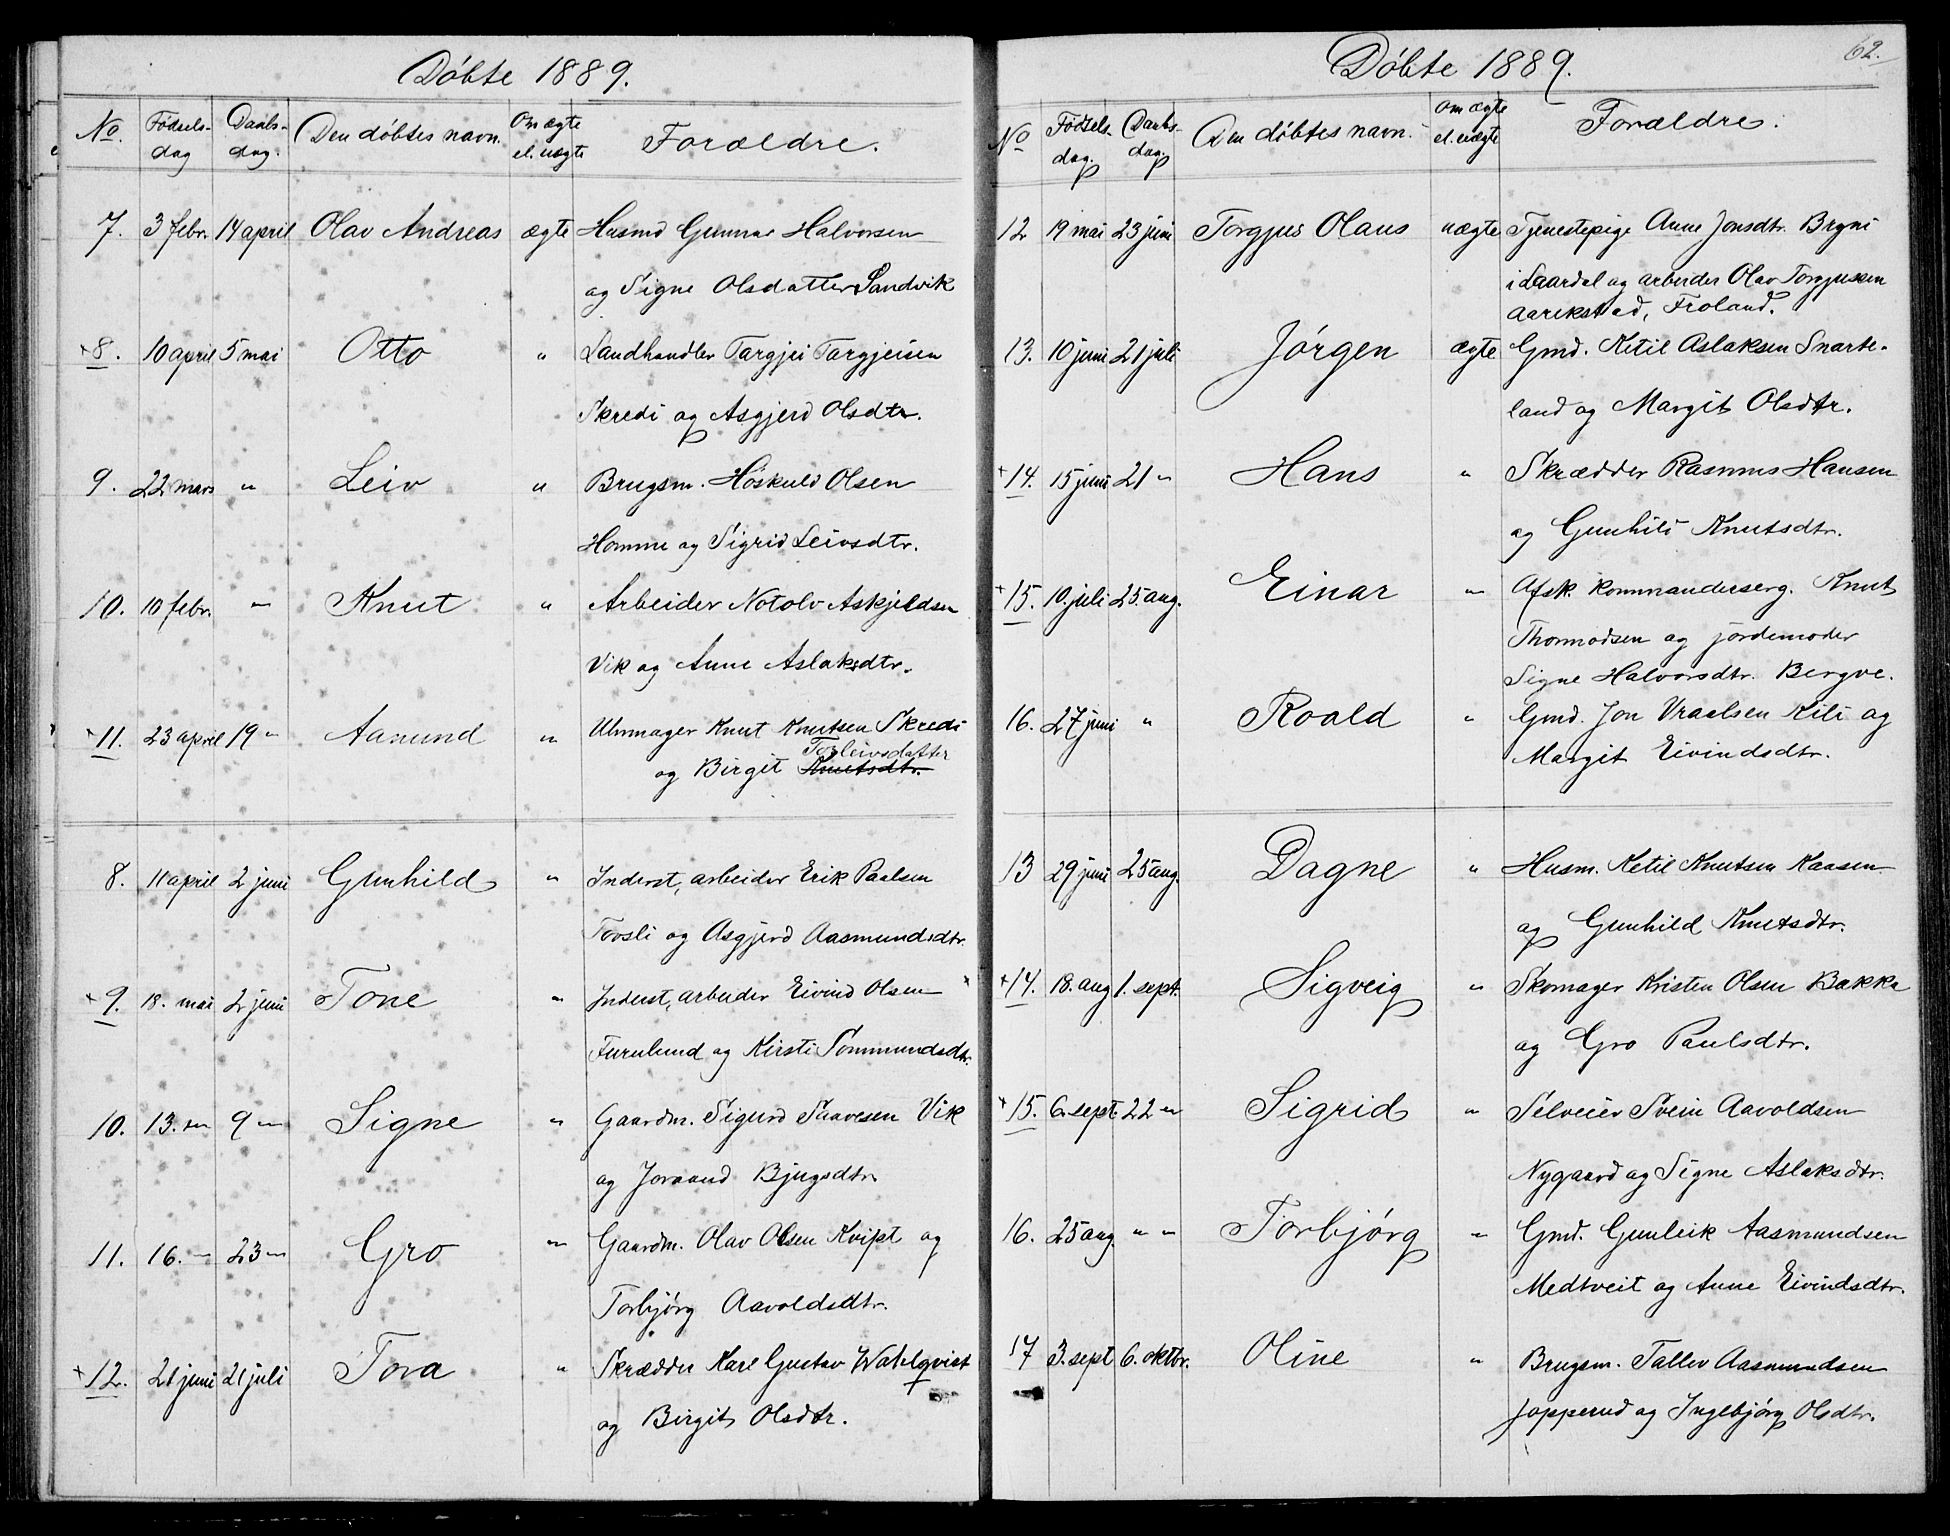 Døbte 1889.
No. Fødselsdag Daabsdag. Den døbtes navn. Om ægte el. uægte Forældre.
7. 3 febr. 14 april Olav Andreas ægte Husmd Gunnar Halvorsen
og Signe Olsdatter Sandvik
+8. 10 april 5 mai Otto " Landhandler Targjei Targjeisen
Skredi og Asgjerd Olsdtr.
9. 22 mars " Leiv " Brugsm. Høskuld Olsen
Homme og Sigrid Leivsdtr.
10. 10 febr. " Knut " Arbeider Notolv Askjeldsen
Vik og Anne Aslaksdtr.
+11. 23 april 19 " Aanund " Uhrmager Knut Knutsen Skredi
Torleivsdatter
og Birgit Knutsdtr.
8. 11 april 2 juni Gunhild " Inderst, arbeider Erik Paalsen
Tovsli og Asgjerd Aasmundsdtr.
+9. 18. mai 2 juni Tone " Inderst, arbeider Eivind Olsen
Furulund og Kirsti Sommundsdtr.
10. 13. " 9 " Signe " Gaardm. Sigurd Saavesen Vik
og Joraand Bjugsdtr.
11. 16. " 23 " Gro " Gaardm. Olav Olsen Kvipt og
Torbjørg Aavoldsdtr.
+12. 21 juni 21 juli Tora " Skrædder Karl Gustav Wahlqvist
og Birgit Olsdtr.
62.
Døbte 1889.
No Fødselsdag. Daabsdag. Den døbtes navn. Om ægte el. uægte Forældre.
12 19 mai 23 juni Torgjus Olaus uægte Tjenestepige Anne Jonsdtr. Brgni
i Laardal og arbeider Olav Torgjussen
Aarikstad, Froland.
13. 10 juni 21 juli Jørgen ægte Gmd. Ketil Aslaksen Snarte-
land og Margit Olsdtr.
+14. 15 juni 21 " Hans " Skrædder Rasmus Hansen
og Gunhild Knutsdtr.
+15. 10. juli 25. aug. Einar " Afsk. kommanderserg. Knut
Thormodsen og jordemoder
Signe Halvorsdtr. Bergve.
16. 27 juni " Roald " Gmd. Jon Vraalsen Kili og
Margit Eivindsdtr.
13 29 juni 25 aug. Dagne " Husm. Ketil Knutsen Kaasen
og Gunhild Knutsdtr.
+14. 18. aug 1. sept. Sigveig " Skomager Kristen Olsen Bakka
og Gro Paulsdtr.
+15. 6. sept. 22 " Sigrid " Selveier Svein Aavoldsen
Nygaard og Signe Aslaksdtr.
16. 25 aug. " " Torbjørg " Gmd. Gunleik Aasmundsen
Medtveit og Anne Eivindsdtr.
17 3. sept 6. oktbr. Oline " Brugsm. Tallev Aasmundsen
Jopperud og Ingebjørg Olsdtr.